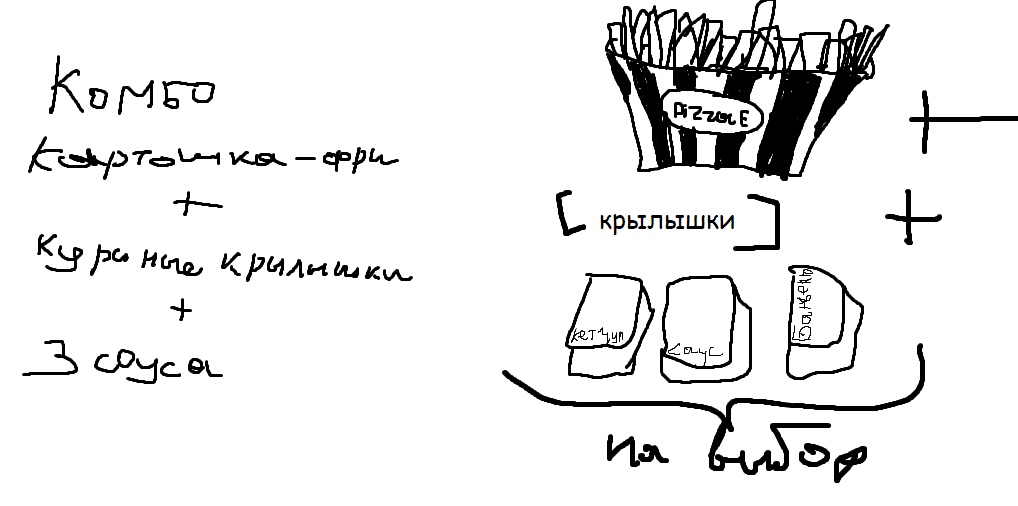 Комбо
Картошка-фри
+
куриные крылышки
+
3 соуса
PizzaE
+
[крылышки]
+
кетчуп
соус
на выбор